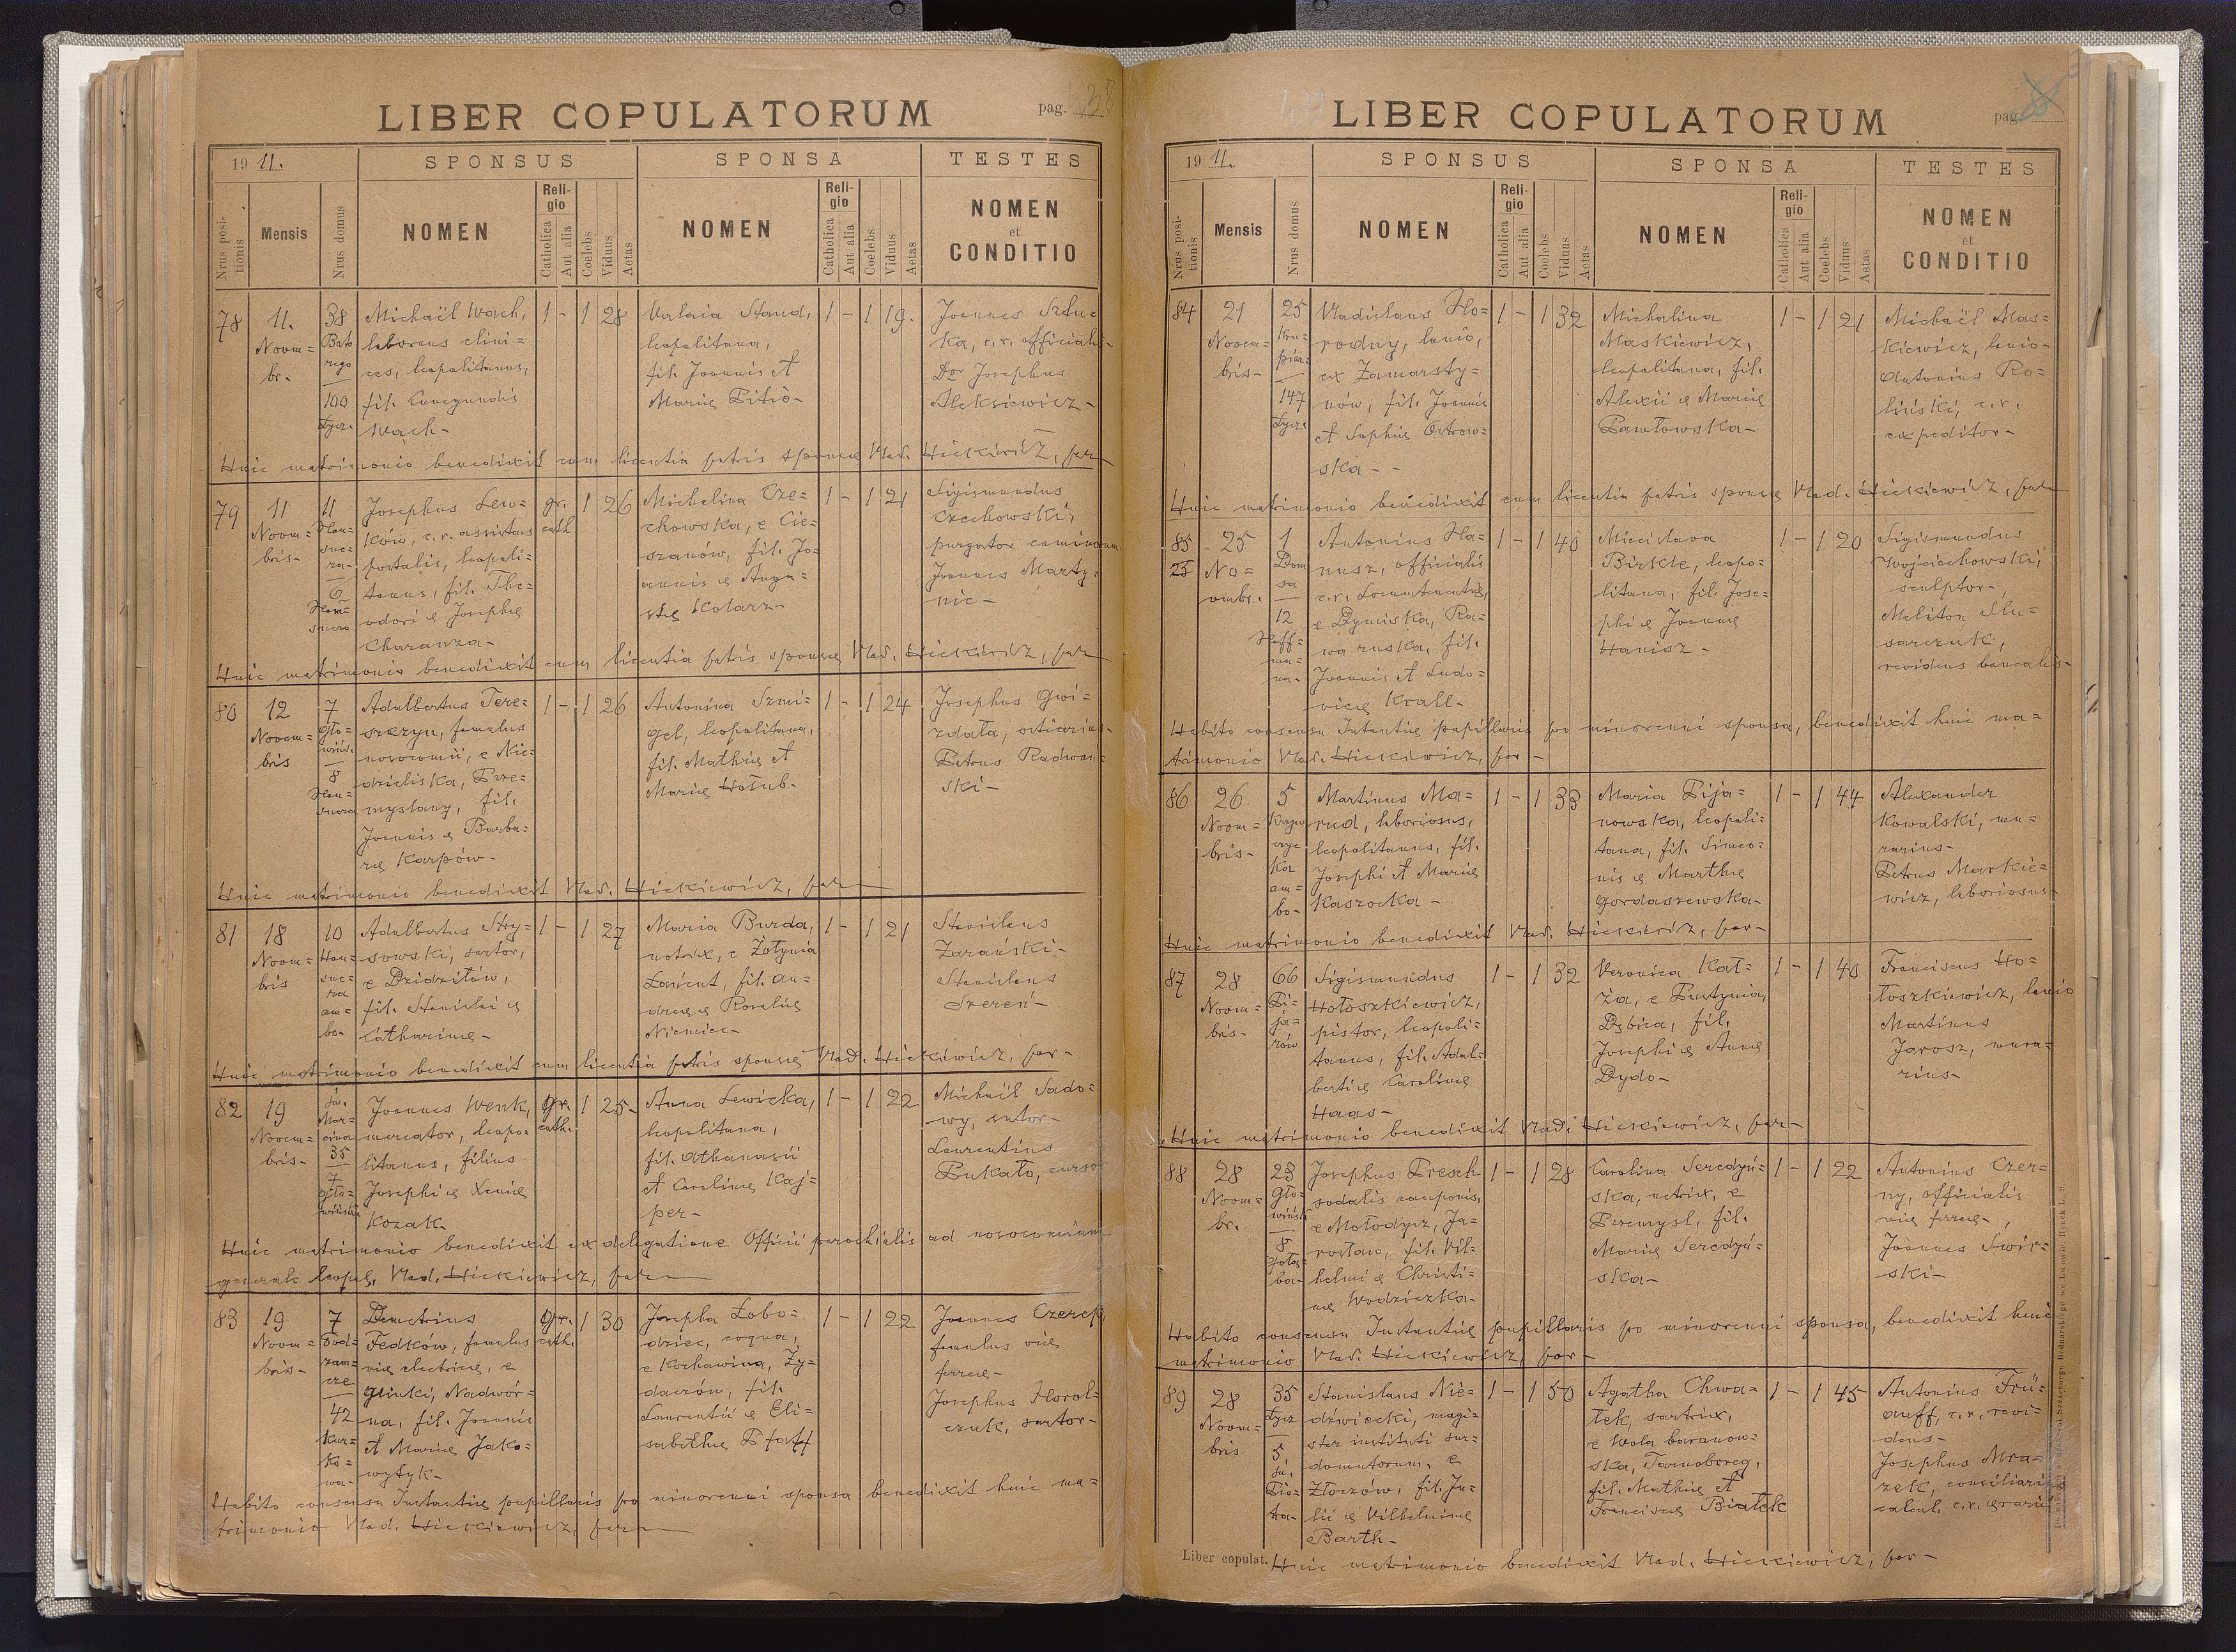 LIBER COPULATORUM
pag. 38
19 11.
SPONSUS
SPONSA
TESTES
Nrus positionis
Mensis
Nrus domus
NOMEN
Religio
Catholica
Aut alia
Coelebs
Viduus
Aetas
NOMEN
Religio
Catholica
Aut alia
Coelebs
Viduus
Aetas
NOMEN
et
CONDITIO
78
11.
Novem=
br.
38
Bato
rego
100
Łycz.
Michaël Wach,
laborans clini=
ces, leopolitanus,
fil. Cunegundis
Wach-
1 - 1 28
Valeria Staud,
leopolitana,
fil. Joannis et
Mariæ Pitiò-
1 - 1 19.
Joannes Sztu=
ka, c.r. officialis-
Dor Josephus
Aleksiewicz-
Huic matrimonio benedixit cum licentia patris sponsæ Vlad. Hickiewicz, par-
79
11
Novem=
bris-
11
Hau=
sne=
ra-
6
Hau=
snera
Josephus Lew=
ków, c.r. assistens
postalis, leopoli=
tanus, fil. The=
odori & Josephæ
Charanza-
gr.
cath
1 26
Michelina Cze=
chowska, e Cie=
szanów, fil. Jo=
annis & Augu=
stæ Kolarz-
1 - 1 21
Sigismundus
Czechowski,
purgator caminorum
Joannes Marty=
nic-
Huic matrimonio benedixit cum licentia patris sponsæ Vlad. Hickiewicz, par
80
12
Novem=
bris
7
Gło=
wińs.
8
Hau=
snera
Adalbertus Tere=
szczyn, famulus
nosocomii, e Nie=
dzieliska, Prze=
myślany, fil.
Joannis & Barba=
ræ Karpów-
1 - 1 26
Antonina Szmi=
gel, leopolitana,
fil. Mathiæ et
Mariæ Hołub-
1 - 1 24
Josephus Gwi=
zdała, ostiarius-
Petrus Radwań=
ski-
Huic matrimonio benedixit Vlad. Hickiewicz, par
81
18
Novem=
bris
10
Hau=
sne=
ra
am=
bo-
Adalbertus Stry=
sowski, sartor,
e Dzidziłów,
fil. Stanislai &
Catharinæ-
1 - 1 27
Maria Burda,
nutrix, e Żołynia
Łańcut, fil. An=
dreæ & Rosaliæ
Niemiec-
1 - 1 21
Stanislaus
Zarański-
Stanislaus
Szereń-
Huic matrimonio benedixit cum licentia patris sponsæ Vlad. Hickiewicz, par-
82
19
Novem=
bris-
św.
Mar=
cina
35
7
Gło=
wińsk.
Joannes Wenk,
mercator, leopo=
litanus, filius
Josephi & Xeniæ
Kozak-
Gr.
cath.
1 25-
Anna Lewicka,
leopolitana,
fil. Athanasii
et Carolinæ Kaj=
per-
1 - 1 22
Michaël Sado=
wy, sutor-
Laurentius
Pukało, cursor
Huic matrimonio benedixit ex delegatione Officii parochialis ad nosocomium
generale leopol. Vlad. Hickiewicz, par
83
19
Novem=
bris-
7
Pod=
zam=
cze
42
Kur=
ko=
wa-
Demetrius
Fedków, famulus
viæ electricæ, e
Glinki, Nadwór=
na, fil. Joannis
et Mariæ Jako=
wytyk-
Gr.
cath.
1 30
Josepha Łobo=
dziec, coqua,
e Kochawina, Ży=
daczów, fil.
Laurentii & Eli=
sabethæ Pfaff
1 - 1 22
Joannes Czerep
famulus viæ
ferreæ-
Josephus Horol=
czuk, sartor-
Habito consensu Instantiæ pupillaris pro minorenni sponsa benedixit huic ma=
trimonio Vlad. Hickiewicz, par
LIBER COPULATORUM
pag.
19 11.
SPONSUS
SPONSA
TESTES
Nrus positionis
Mensis
Nrus domus
NOMEN
Religio
Catholica
Aut alia
Coelebs
Viduus
Aetas
NOMEN
Religio
Catholica
Aut alia
Coelebs
Viduus
Aetas
NOMEN
et
CONDITIO
84
21
Novem=
bris-
25
Kru=
piar=
147
Łycz.
Vladislaus Ho=
rodny, lanio,
ex Zamarsty=
nów, fil. Joannis
et Sophiæ Ostrow=
ska--
1 - 1 32
Michalina
Maskiewicz,
leopolitana, fil.
Alexii & Mariæ
Pawłowska-
1 - 1 21
Michaël Mas=
kiewicz, lanio-
Antonius Ro=
liński, c.r.
expeditor-
Huic matrimonio benedixit cum licentia patris sponsæ Vlad. Hickiewicz, par
85
25
25
No=
vembr.
1
Dom
sa
12
Hoff=
ma=
na-
Antonius Ha=
nusz, officialis
c.r. Locumtenentiæ,
e Dyniska, Ra=
wa ruska, fil.
Joannis et Ludo=
vicæ Krall-
1 - 1 40
Miecislava
Birkle, leopo=
litana, fil. Jose=
phi & Joannæ
Hanisz-
1 - 1 20
Sigismundus
Wojciechowski,
sculptor-,
Meliton Slu=
sarczuk,
revidens bancalis-
Habito consensu Instantiæ pupillaris pro minorenni sponsa, benedixit huic ma=
trimonio Vlad. Hickiewicz, par-
86
26
Novem=
bris-
5
Krzyw
czyc
ka
am=
bo-
Martinus Ma=
rud, laboriosus,
leopolitanus, fil.
Josephi et Mariæ
Kaszocka-
1 - 1 33
Maria Pija=
nowska, leopoli=
tana, fil. Simeo=
nis & Marthæ
Gordaszewska-
1 - 1 44
Alexander
Kowalski, mu=
rarius-
Petrus Markie=
wicz, laboriosus-
Huic matrimonio benedixit Vlad. Hickiewicz, par-
87
28
Novem=
bris-
66
Pi=
ja=
rów
Sigismundus
Hołoszkiewicz,
pistor, leopoli=
tanus, fil. Adal=
berti & Carolinæ
Haas-
1 - 1 32
Veronica Kał=
ża, e Pustynia,
Dębica, fil.
Josephi & Annæ
Dydo-
1 - 1 40
Franciscus Ho=
łoszkiewicz, lanio
Martinus
Jarosz, mura=
rius-
Huic matrimonio benedixit Vlad. Hickiewicz, par-
88
28
Novem=
br.
23
Gło=
wińsk
8
Gołąs=
ba-
Josephus Presch
sodalis cauponis,
e Mołodycz, Ja=
rosław, fil. Vil=
helmi & Christi=
næ Wodziczka-
1 - 1 28
Carolina Seredyń=
ska, nutrix, e
Przemysl, fil.
Mariæ Seredyń=
ska-
1 - 1 22
Antonius Czer=
ny, officialis
viæ ferreæ-,
Joannes Swir=
ski-
Habito consensu Instantiæ pupillaris pro minorenni sponsa, benedixit huic
matrimonio Vlad. Hickiewicz, par-
89
28
Novem=
bris
35
Łycz
5
św.
Pio=
tra-
Stanislaus Nie=
dźwiecki, magi=
ster instituti sur=
domutorum, e
Złoczów, fil. Ju=
lii & Vilhelminæ
Barth-
1 - 1 50
Agatha Chwa=
łek, sartrix,
e Wola baranow=
ska, Tarnobrzeg,
fil. Mathiæ et
Franciscæ Białek
1 - 1 45
Antonius Frü=
auff, c.r. revi=
dens-
Josephus Mra=
zek, consiliari
calcul. c.r. ærarii
Liber copulat. Huic matrimonio benedixit Vlad. Hickiewicz, par-